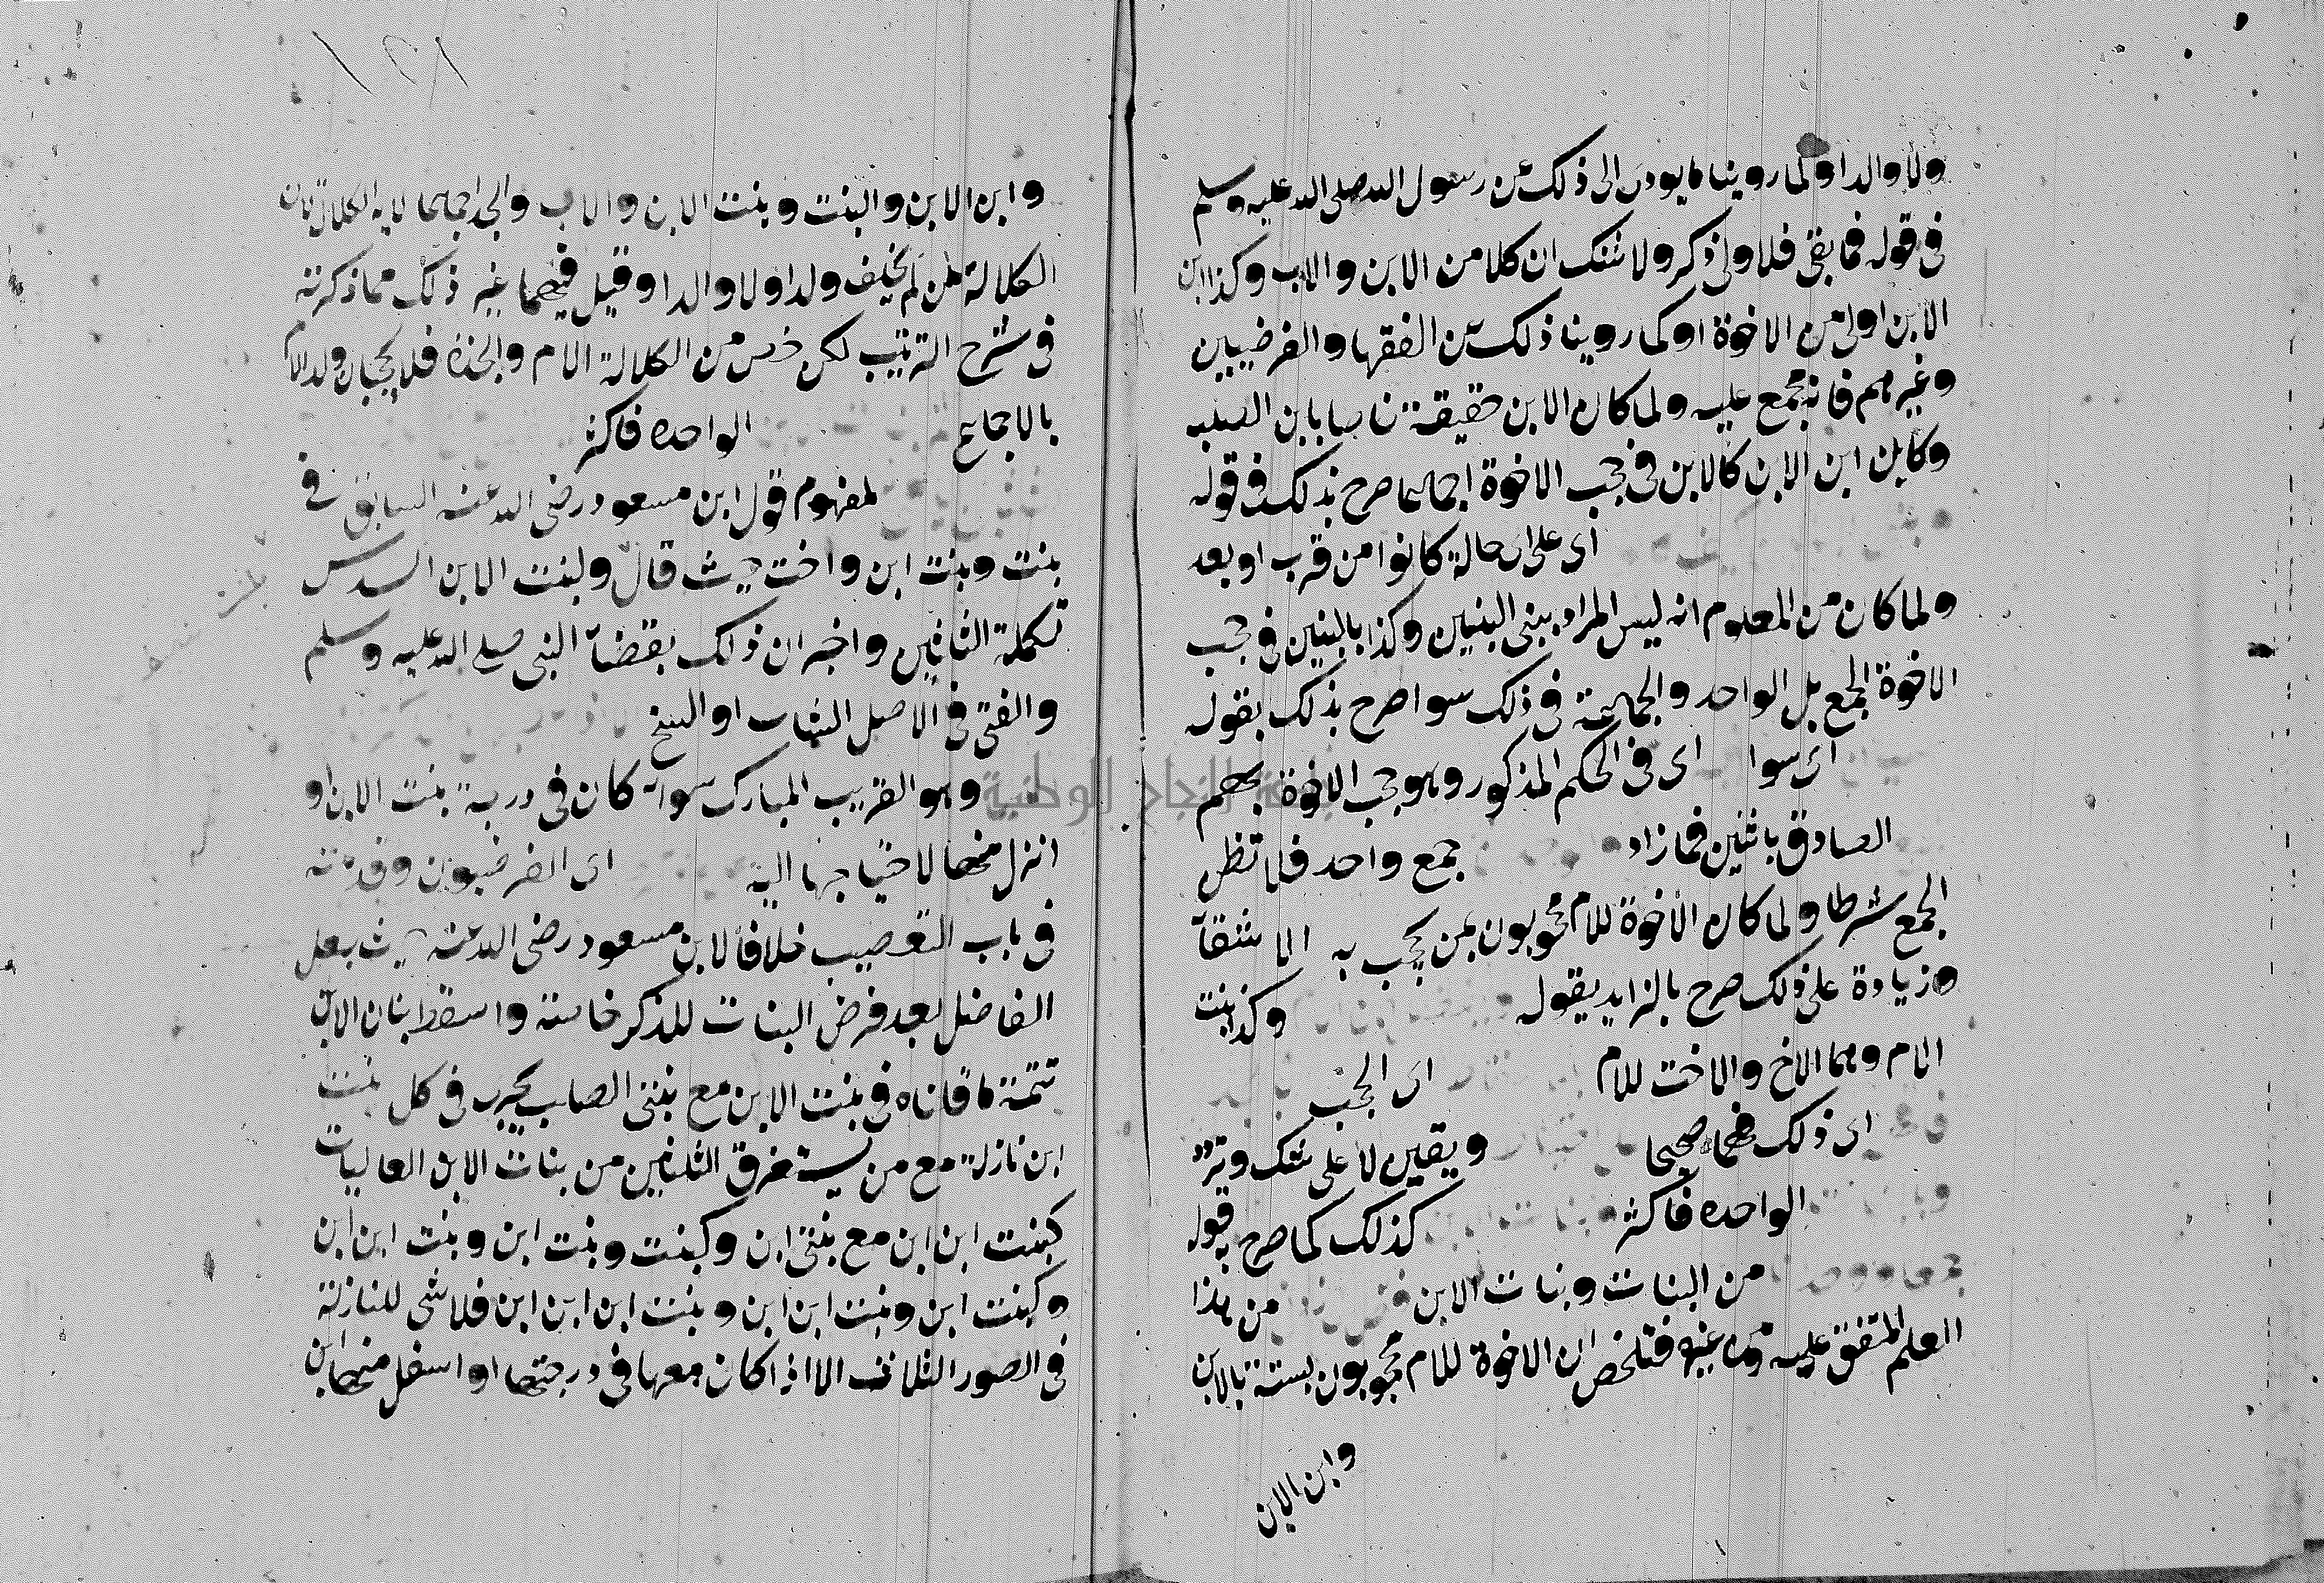 ولا والدا ولما روينا ما يودى الى ذلك عن رسول الله صلى الله عليه وسلم
فى قوله فما بقى فلاولى ذكر ولا شك ان كلا من الابن والاب وكذا ابن
الابن اولى من الاخوة او كما روينا ذلك عن الفقها والفرضيين
وغيرهم فانه مجمع عليه ولما كان الابن حقيقة بابن الصلب
وكان ابن الابن كالابن فى حجب الاخوة اجماعا صرح بذلك فى قوله
اى على اى حالة كانوا من قرب او بعد
ولما كان من المعلوم انه ليس المراد ببنى البنين وكذا بالبنين فى حجب
الاخوة الجمع بل الواحد والجماعة فى ذلك سوا صرح بذلك بقوله
اى سوا اى فى الحكم المذكور وهو حجب الاخوة بهم
الصادق باثنين فما زاد جمع واحد فلا تظن
الجمع شرطا ولما كان الاخوة للام محجوبون بمن يحجب به الاشقا
وزيادة على ذلك صرح بالزايد بقوله وكذا بنت
الام وهما الاخ والاخت للام اى الحجب
اى ذلك فهما صحيحا ويقين لا على شك وتردد
الواحده فاكثر كذلك كما صرح بقوله
من البنات وبنات الابن من هذا
العلم المتفق عليه ومن غيره فتلخص ان الاخوة للام محجوبون بستة بالابن
وابن الابن
وابن الابن والبنت وبنت الابن والاب والجد اجماعا لاية الكلالة لان
الكلالة من لم يخلف ولدا ولا والدا وقيل فيهما غير ذلك مما ذكرته
فى شرح الترتيب لكن خص من الكلالة الام والجدة فلا يحجبان ولد الام
بالاجماع الواحده فاكثر
لمفهوم قول ابن مسعود رضى الله عنه السابق فى
بنت وبنت ابن واخت حيث قال ولبنت الابن السدس
تكملة الثلثين واخبر ان ذلك بقضا النبى صلى الله عليه وسلم
والفتى فى الاصل الشاب او السخى
وهو القريب المبارك سوا كان فى درجة بنت الابن او
انزل منها لاحتياجها اليه اى الفرضيون وقدمته
فى باب التعصيب خلافا لابن مسعود رضى الله عنه حيث جعل
الفاضل بعد فرض البنات للذكر خاصة واسقط بنات الابن
تتمة ما قلناه فى بنت الابن مع بنتى الصلب يجرى فى كل بنت
ابن نازلة مع من يستغرق الثلثين من بنات الابن العاليات
كبنت ابن ابن مع بنتى ابن وكبنت وبنت ابن وبنت ابن ابن
وكبنت ابن وبنت ابن ابن وبنت ابن ابن ابن فلا شى للنازلة
فى الصور الثلاث الا اذا كان معها فى درجتها او اسفل منها ابن
جامعة النجاح الوطنية